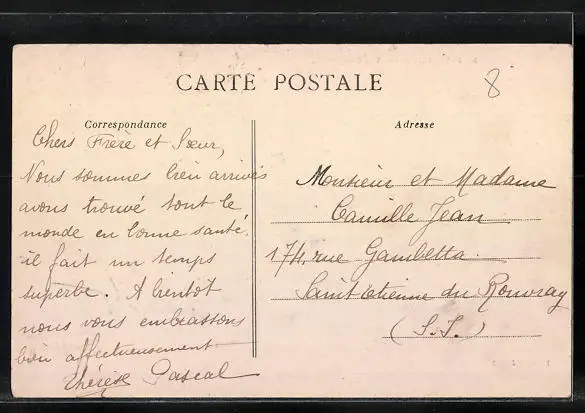 CARTE POSTALE
8
Correspondance
Chers Frère et Sœur,
Nous sommes bien arrivés
avons trouvé tout le
monde en bonne santé.
il fait un temps
superbe. A bientôt
nous vous embrassons
bien affectueusement
Thérèse Pascal
Adresse
Monsieur et Madame
Camille Jean
174, rue Gambetta
Saint etienne du Rouvray
(S. I.)